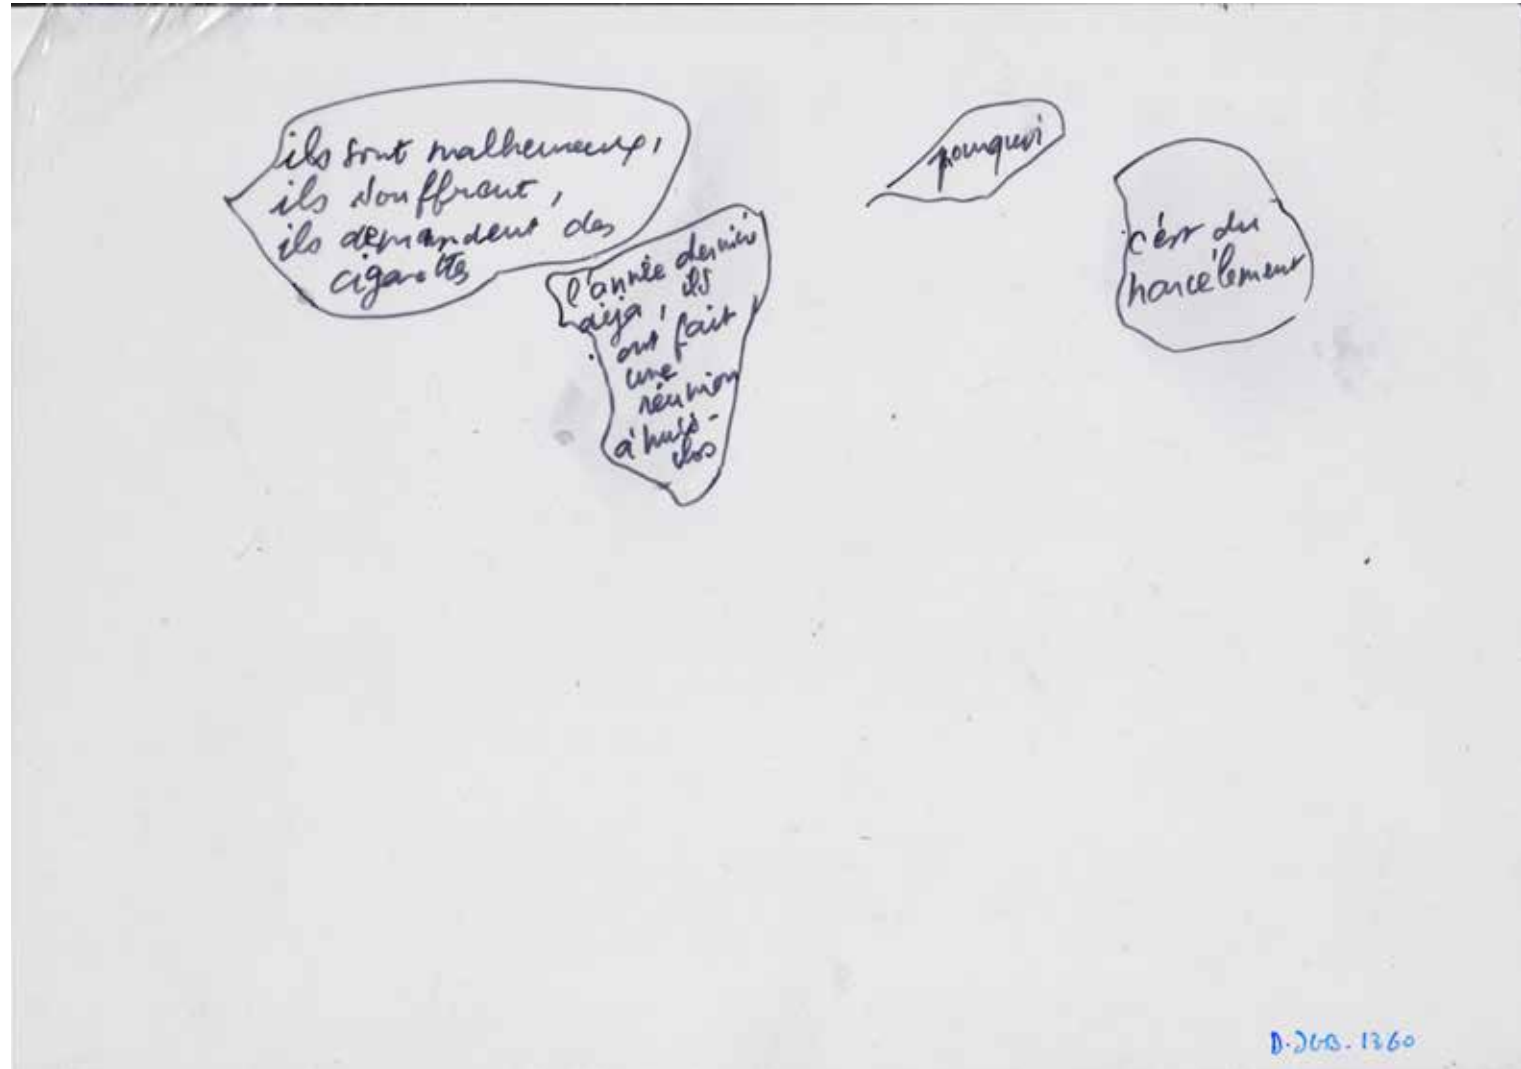 ils sont malheureux,
ils souffrent,
ils demandent des
cigarettes
l'année dernière
déjà, ils
ont fait
une
réunion
à huis-
clos
pourquoi
c'est du
harcèlement
D.JGB.1360